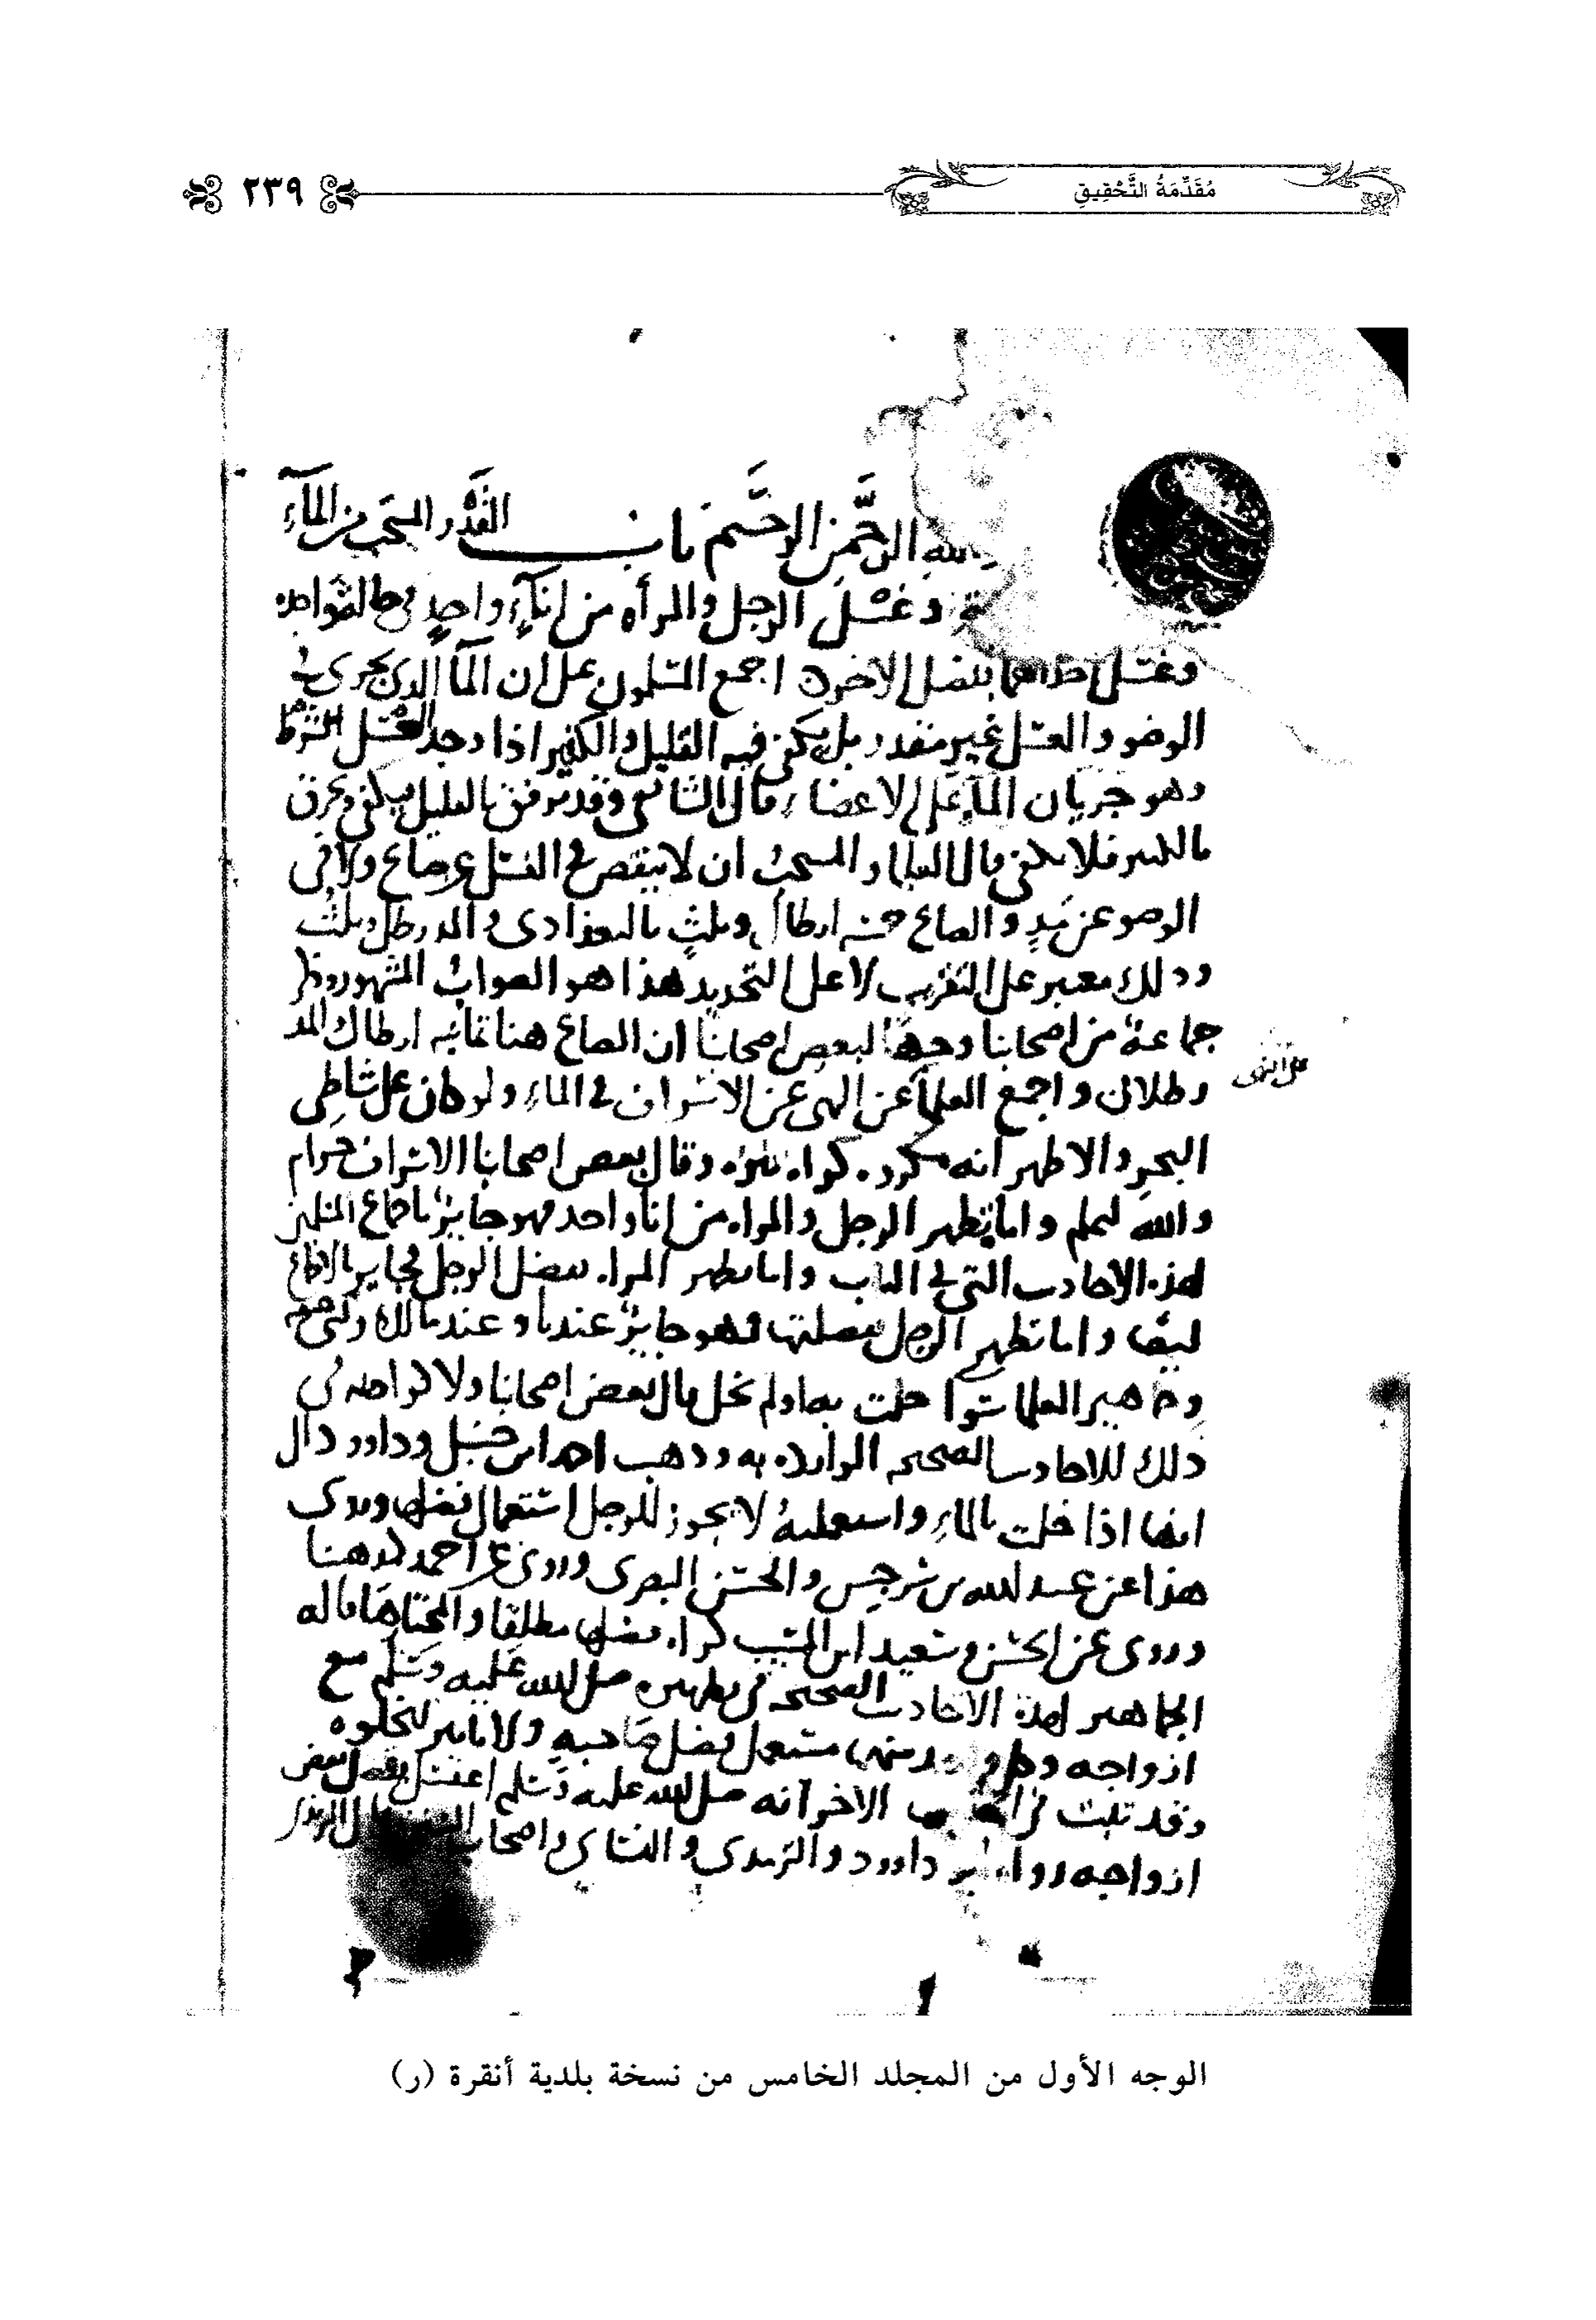 مُقَدِّمَةُ التَّحْقِيقِ
٢٣٩
الله الرحمن الرحيم باب القدر المستحب من الماء
وغسل الرجل والمرأة من إناء واحد في حالة واحدة
وغسل احدهما بفضل الاخر اجمع المسلمون على ان الماء الذي يجزى في
الوضو والغسل غير مقدر بل يكفي فيه القليل والكثير اذا وجد شرط الغسل
وهو جريان الماء على الاعضاء قال الشافعي وقد يرفق بالقليل فيكفي ويخرق
بالكثير فلا يكفي قال العلما والمستحب ان لا ينقص في الغسل عن صاع ولا في
الوضو عن مد والصاع خمسة ارطال وثلث بالبغدادي والمد رطل وثلث
وذلك معتبر على التقريب لا على التحديد هذا هو الصواب المشهور وذكر
جماعة من اصحابنا وجها لبعض اصحابنا ان الصاع هنا ثمانية ارطال والمد
رطلان واجمع العلما عن النهي عن الاسراف في الماء ولو كان على شاطئ
البحر والاظهر انه مكروه كراهة تنزيه وقال بعض اصحابنا الاسراف حرام
والله اعلم واما تطهر الرجل والمراة من انا واحد فهو جايز باجماع المسلمين
لهذه الاحاديث التي في الباب واما تطهر المراة بفضل الرجل فجايز بالاجماع
ايضا واما تطهر الرجل بفضلها فهو جايز عندنا وعند مالك وابي حنيفة
وجماهير العلما سوا خلت به اولم تخل قال بعض اصحابنا ولا كراهة في
ذلك للاحاديث الصحيحة الواردة به وذهب احمد ابن حنبل وداود الى
انها اذا خلت بالماء واستعملته لا يجوز للرجل استعمال فضلها وروى
هذا عن عبد الله بن سرجس والحسن البصري وروى عن احمد كمذهبنا
وروى عن الحسن وسعيد ابن المسيب كراهة فضلها مطلقا والمختار ما قاله
الجماهير لهذه الاحاديث الصحيحة في تطهيره صلى الله عليه وسلم مع
ازواجه وكل واحد منهما يستعمل فضل صاحبه ولا تاثير للخلوة
وقد ثبت في الحديث الاخر انه صلى الله عليه وسلم اغتسل بفضل بعض
ازواجه رواه ابو داوود والترمذي والنسائي واصحاب السنن قال الترمذي
الوجه الأول من المجلد الخامس من نسخة بلدية أنقرة (ر)